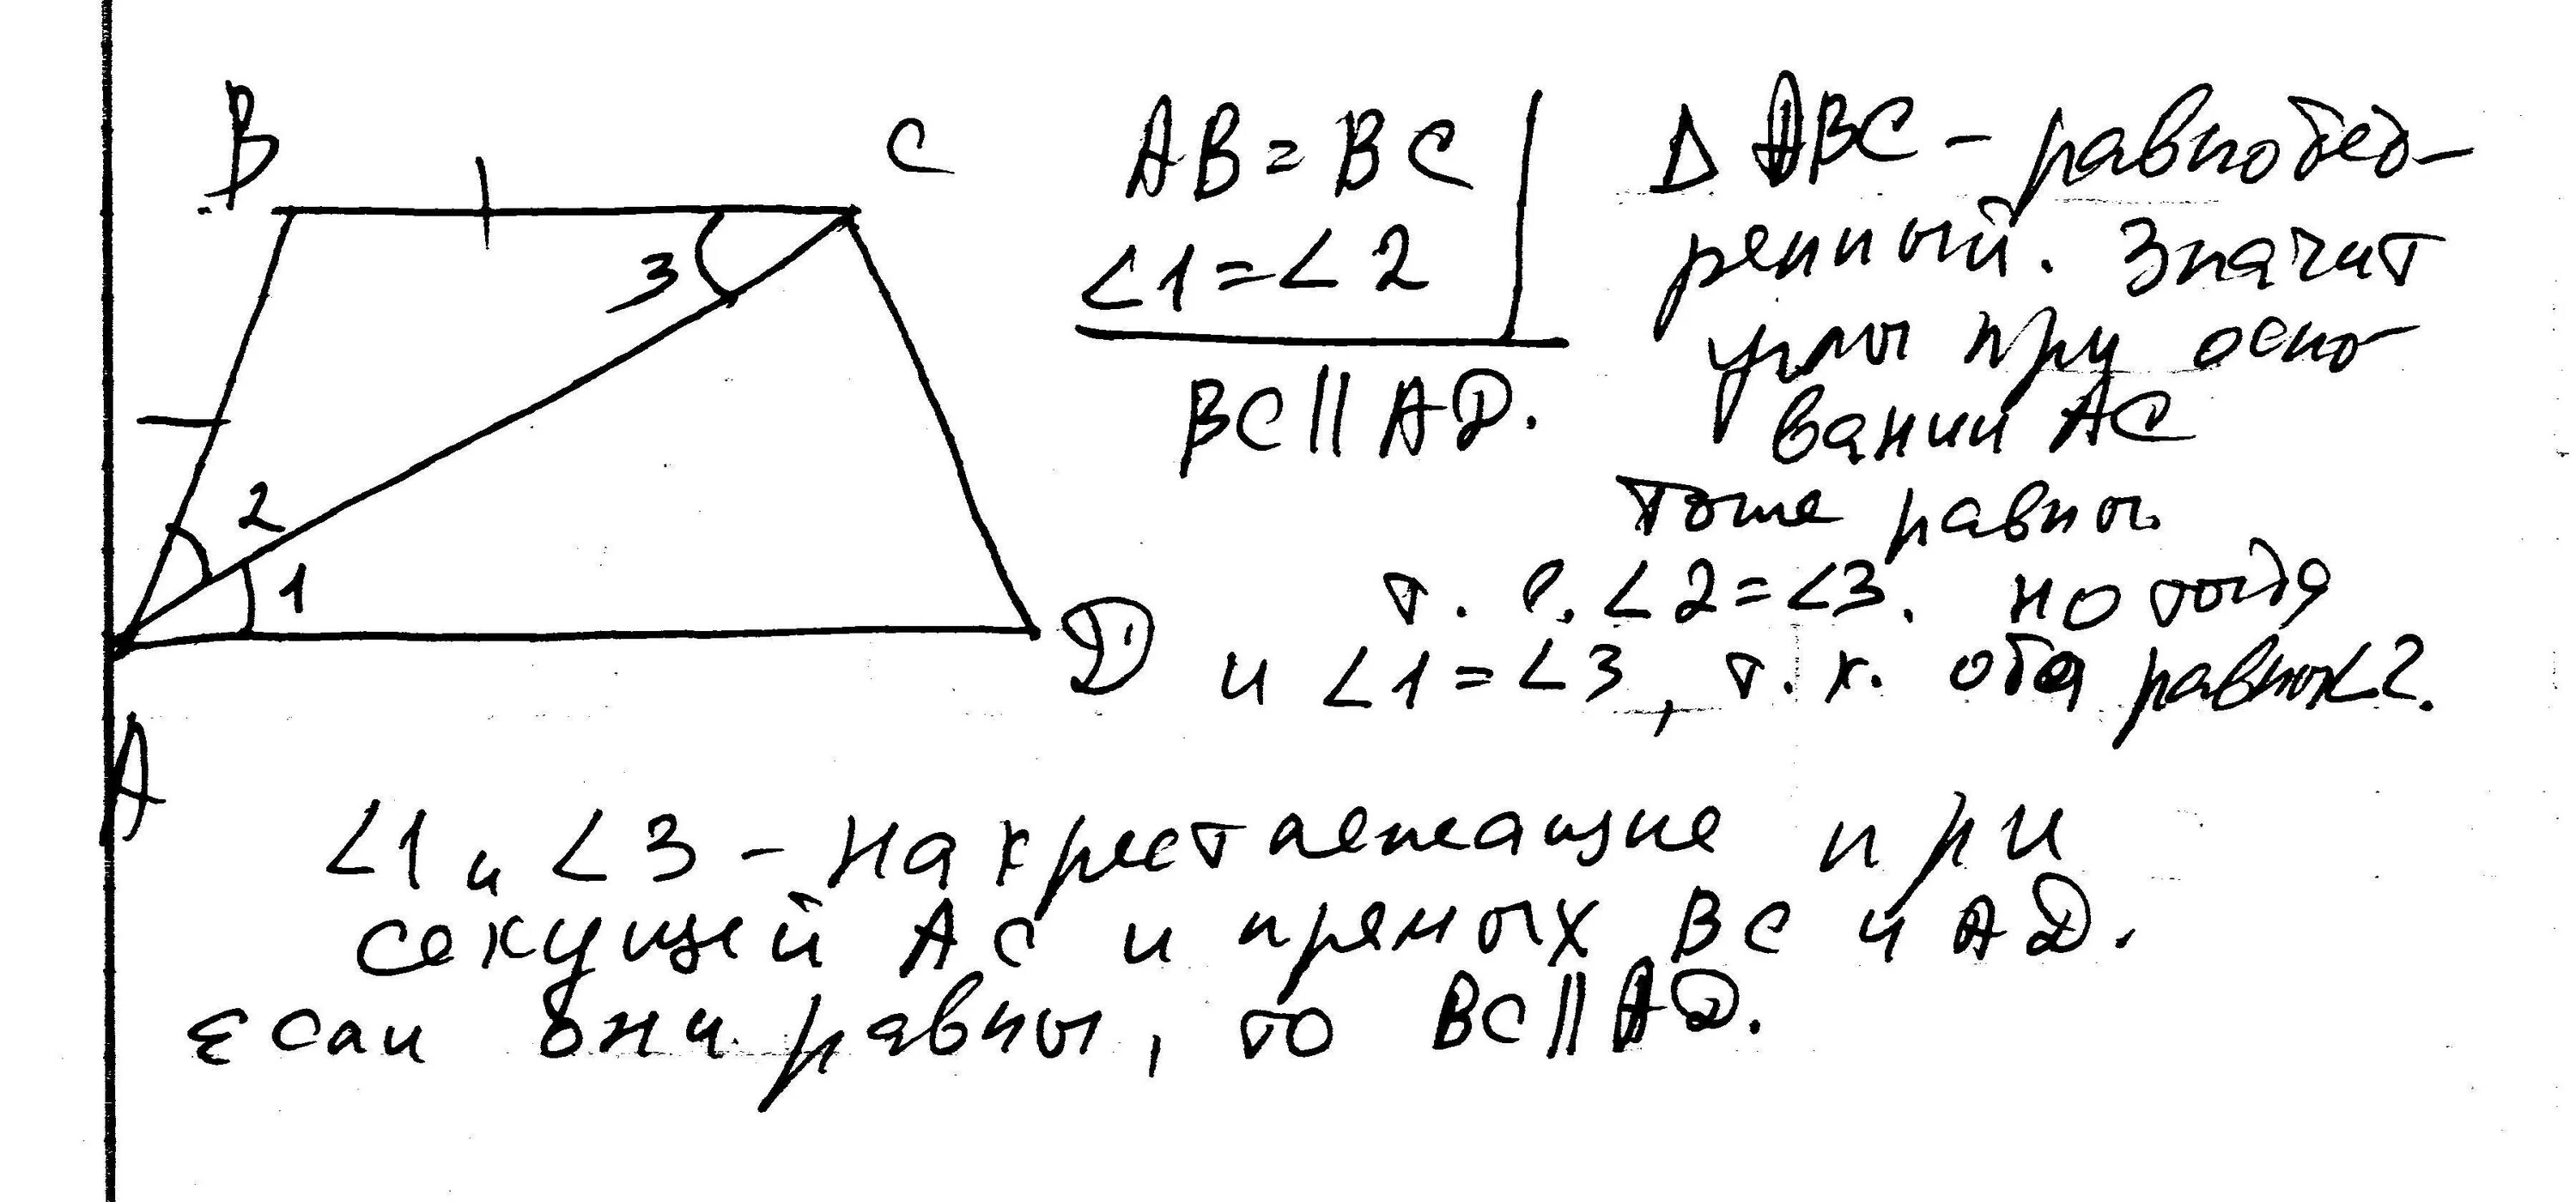 B
C
3
2
1
D
A
AB = BC
∠1 = ∠2
BC || AD.
Δ ABC – равнобед-
ренный. Значит
углы при осно-
вании AC
тоже равны
т. е. ∠2 = ∠3. но тогда
и ∠1 = ∠3, т. к. оба равны ∠2.
∠1 и ∠3 – накрест лежащие при
секущей AC и прямых BC и AD.
Если они равны, то BC || AD.